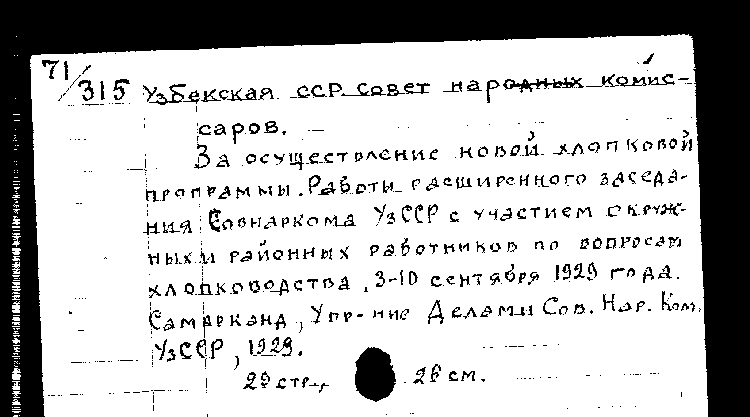 71/315 Узбекская ССР. Совет народных комис-
саров.
За осуществление новой хлопковой
программы. Работы расширенного заседа-
ния Совнаркома УзССР с участием окруж-
ных и районных работников по вопросам
хлопководства, 3-10 сентября 1929 года.
Самарканд, Упр-ние Делами Сов. Нар. Ком.
УзССР, 1929.
29 стр., 26 см.